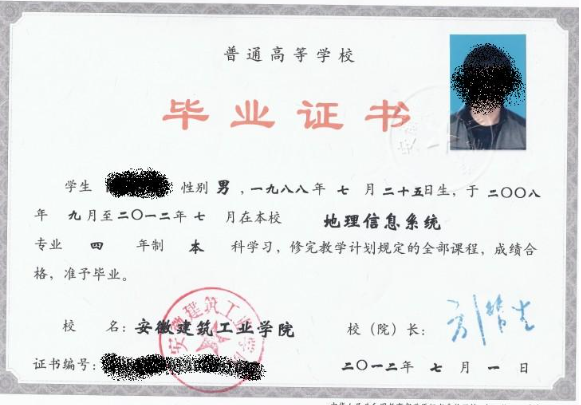 普通高等学校
毕业证书
学生 性别 男 ，一九八八年 七 月 二十五日生，于 二〇〇八
年 九 月至二〇一二年 七 月在本校 地理信息系统
专业 四 年制 本 科学习，修完教学计划规定的全部课程，成绩合
格，准予毕业。
校 名：安徽建筑工业学院 校（院）长：
证书编号： 二〇一二年 七 月 一 日